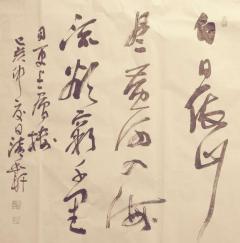 白日依山
尽黄河入海
流欲窮千里
目更上一層楼
癸卯夏日